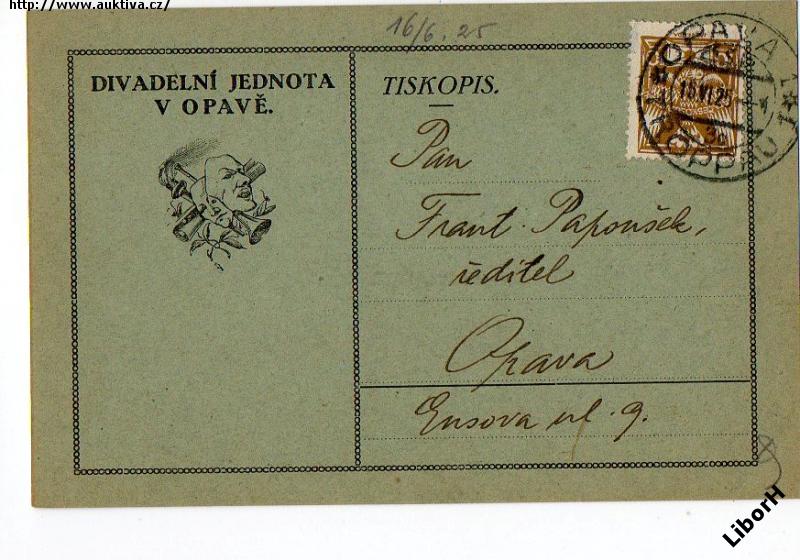 http://www.auktiva.cz/
16/6. 25
DIVADELNÍ JEDNOTA
V OPAVĚ.
TISKOPIS.
OPAVA 1
16.VI.25
TROPPAU 1
Pan
Frant. Papoušek,
ředitel
Opava
Ensova ul. 9.
LiborH